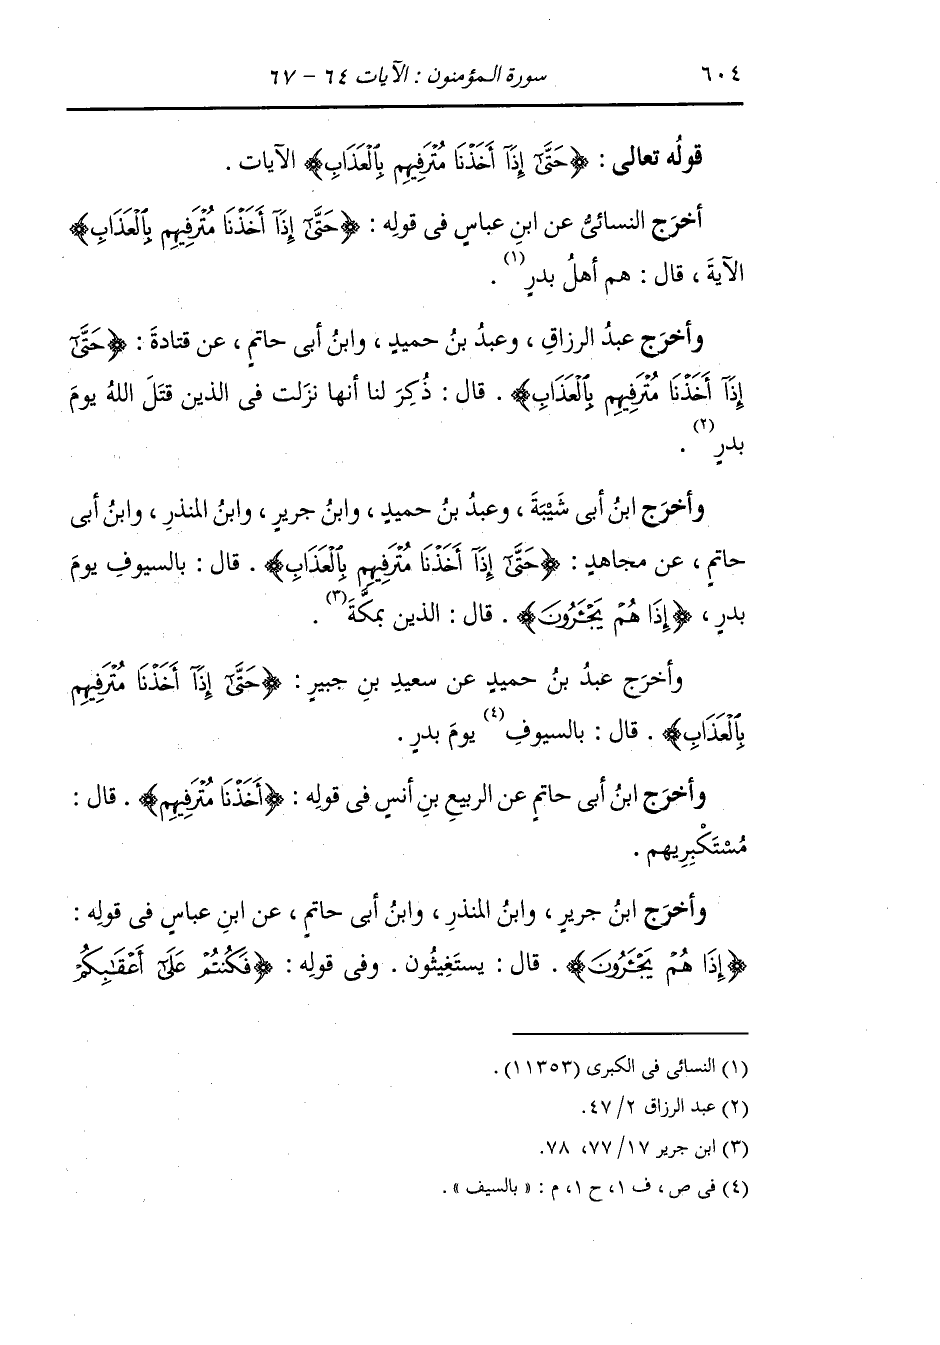 ٦٠٤ سورة المؤمنون : الآيات ٦٤ - ٦٧
قولُه تعالى : ﴿حَتَّىٰٓ إِذَآ أَخَذۡنَا مُتۡرَفِيهِم بِٱلۡعَذَابِ﴾ الآيات .
أخرَج النسائىُّ عن ابنِ عباسٍ فى قولِه : ﴿حَتَّىٰٓ إِذَآ أَخَذۡنَا مُتۡرَفِيهِم بِٱلۡعَذَابِ﴾
الآيةَ ، قال : هم أهلُ بدرٍ(١) .
وأخرَج عبدُ الرزاقِ ، وعبدُ بنُ حميدٍ ، وابنُ أبى حاتمٍ ، عن قتادةَ : ﴿حَتَّىٰٓ
إِذَآ أَخَذۡنَا مُتۡرَفِيهِم بِٱلۡعَذَابِ﴾ . قال : ذُكِرَ لنا أنها نزَلت فى الذين قتَلَ اللهُ يومَ
بدرٍ(٢) .
وأخرَج ابنُ أبى شَيْبَةَ ، وعبدُ بنُ حميدٍ ، وابنُ جريرٍ ، وابنُ المنذرِ ، وابنُ أبى
حاتمٍ ، عن مجاهدٍ : ﴿حَتَّىٰٓ إِذَآ أَخَذۡنَا مُتۡرَفِيهِم بِٱلۡعَذَابِ﴾ . قال : بالسيوفِ يومَ
بدرٍ ، ﴿إِذَا هُمۡ يَجۡـَٔرُونَ﴾ . قال : الذين بمكَّةَ(٣) .
وأخرَج عبدُ بنُ حميدٍ عن سعيدِ بنِ جبيرٍ : ﴿حَتَّىٰٓ إِذَآ أَخَذۡنَا مُتۡرَفِيهِم
بِٱلۡعَذَابِ﴾ . قال : بالسيوفِ(٤) يومَ بدرٍ .
وأخرَج ابنُ أبى حاتمٍ عن الربيعِ بنِ أنسٍ فى قولِه : ﴿أَخَذۡنَا مُتۡرَفِيهِم﴾ . قال :
مُسْتَكْبِرِيهم .
وأخرَج ابنُ جريرٍ ، وابنُ المنذرِ ، وابنُ أبى حاتمٍ ، عن ابنِ عباسٍ فى قولِه :
﴿إِذَا هُمۡ يَجۡـَٔرُونَ﴾ . قال : يستَغِيثُون . وفى قولِه : ﴿فَكُنتُمۡ عَلَىٰٓ أَعۡقَٰبِكُمۡ
(١) النسائى فى الكبرى (١١٣٥٣) .
(٢) عبد الرزاق ٢/ ٤٧.
(٣) ابن جرير ١٧/ ٧٧، ٧٨.
(٤) فى ص ، ف ١، ح ١، م : « بالسيف » .